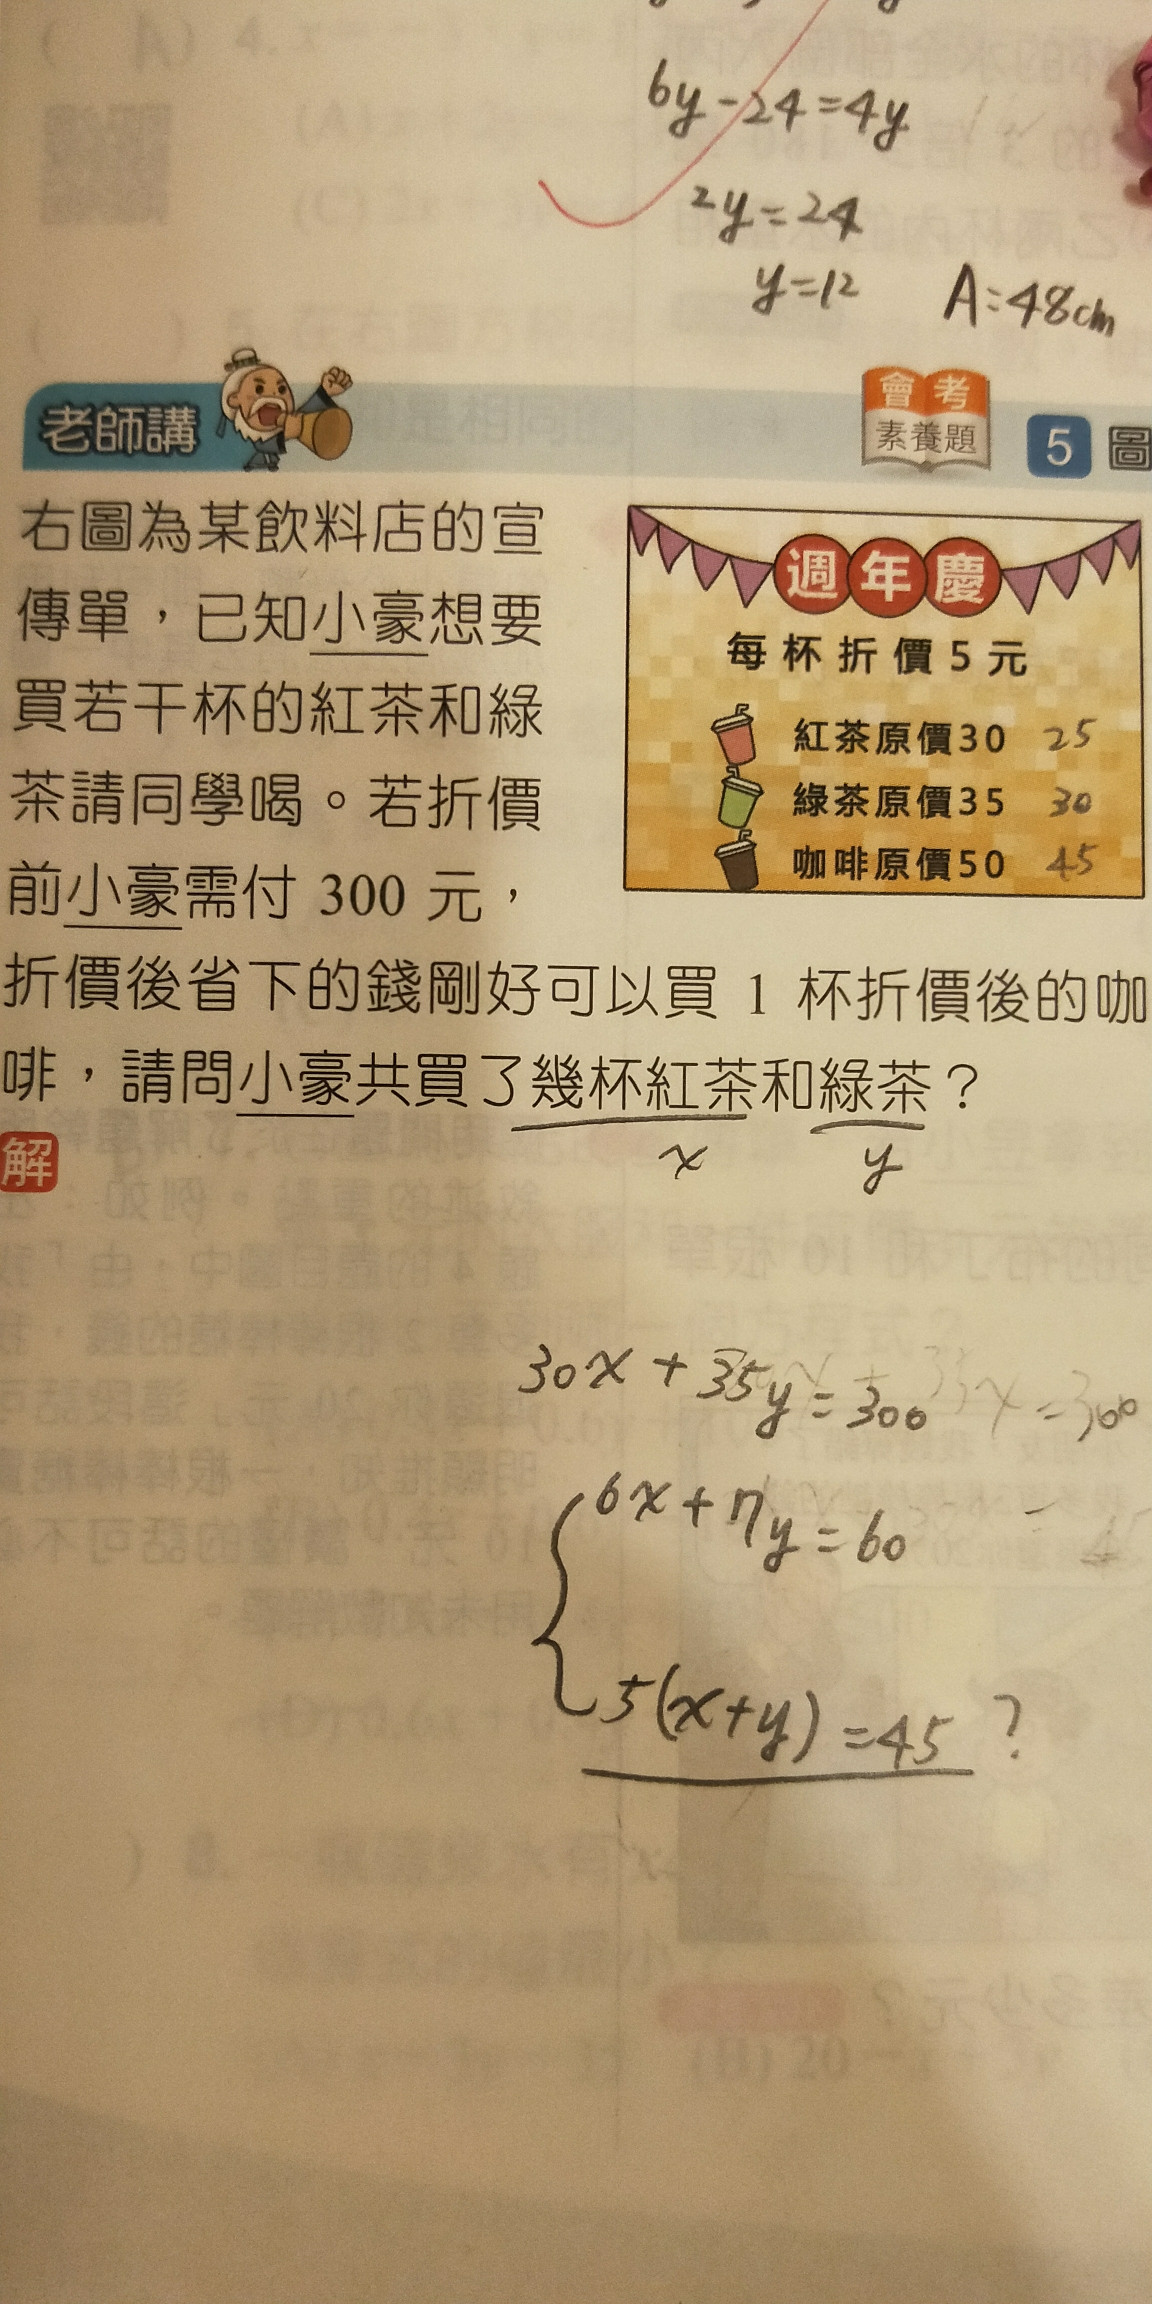 6y-24=4y
2y=24
y=12
A:48cm
老師講
會考
素養題
5 圖
右圖為某飲料店的宣
傳單，已知小豪想要
買若干杯的紅茶和綠
茶請同學喝。若折價
前小豪需付 300 元，
折價後省下的錢剛好可以買 1 杯折價後的咖
啡，請問小豪共買了幾杯紅茶和綠茶？
x y
週年慶
每杯折價5元
紅茶原價30 25
綠茶原價35 30
咖啡原價50 45
解
30x+35y=300
6x+7y=60
5(x+y)=45 ?